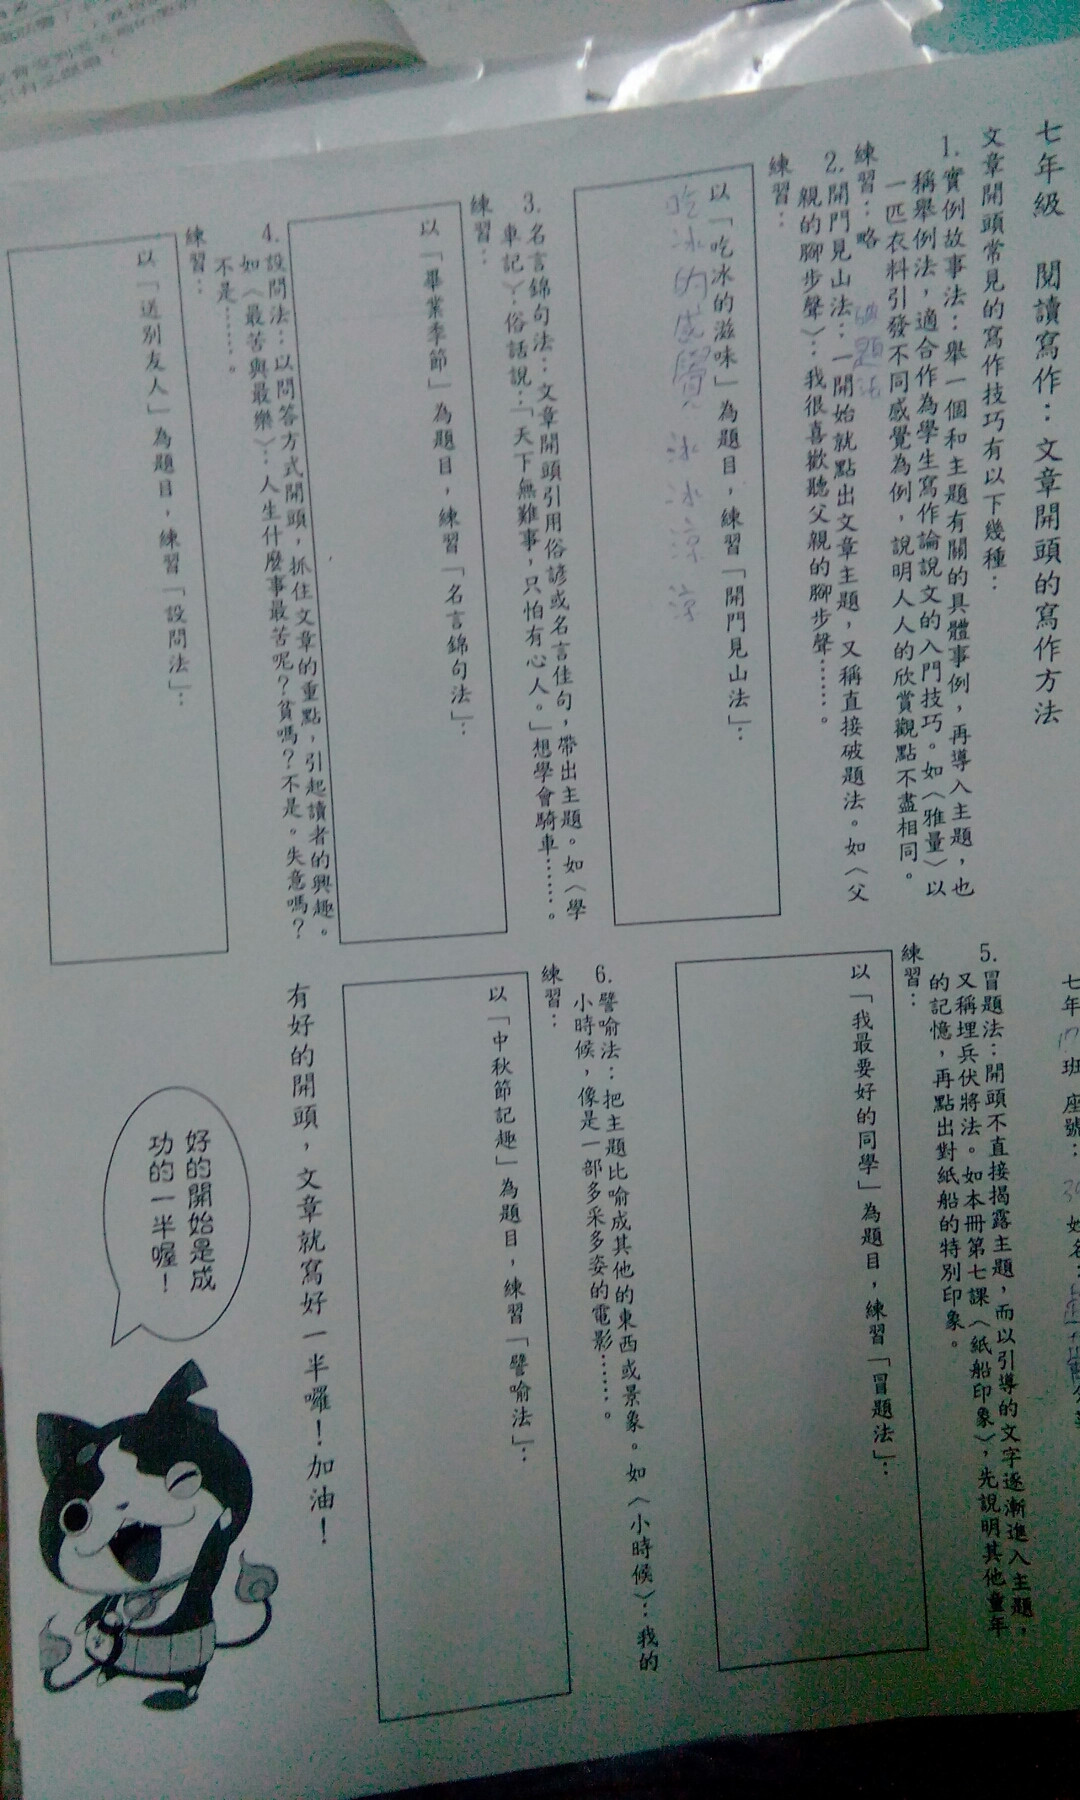 七年級　閱讀寫作：文章開頭的寫作方法
文章開頭常見的寫作技巧有以下幾種：
1. 實例故事法：舉一個和主題有關的具體事例，再導入主題，也
稱舉例法，適合作為學生寫作論說文的入門技巧。如〈雅量〉以
一匹衣料引發不同感覺為例，說明人人的欣賞觀點不盡相同。
練習：略
破題法
2. 開門見山法：一開始就點出文章主題，又稱直接破題法。如〈父
親的腳步聲〉：我很喜歡聽父親的腳步聲……。
練習：
以「吃冰的滋味」為題目，練習「開門見山法」：
吃冰的感覺冰冰涼涼
3. 名言錦句法：文章開頭引用俗諺或名言佳句，帶出主題。如〈學
車記〉：俗話說：「天下無難事，只怕有心人。」想學會騎車……。
練習：
以「畢業季節」為題目，練習「名言錦句法」：
4. 設問法：以問答方式開頭，抓住文章的重點，引起讀者的興趣。
如〈最苦與最樂〉：人生什麼事最苦呢？貧嗎？不是。失意嗎？
不是……。
練習：
以「送別友人」為題目，練習「設問法」：
七年 班 座號： 姓名：
5. 冒題法：開頭不直接揭露主題，而以引導的文字逐漸進入主題，
又稱埋兵伏將法。如本冊第七課〈紙船印象〉，先說明其他童年
的記憶，再點出對紙船的特別印象。
練習：
以「我最要好的同學」為題目，練習「冒題法」：
6. 譬喻法：把主題比喻成其他的東西或景象。如〈小時候〉：我的
小時候，像是一部多采多姿的電影……。
練習：
以「中秋節記趣」為題目，練習「譬喻法」：
有好的開頭，文章就寫好一半囉！加油！
好的開始是成
功的一半喔！